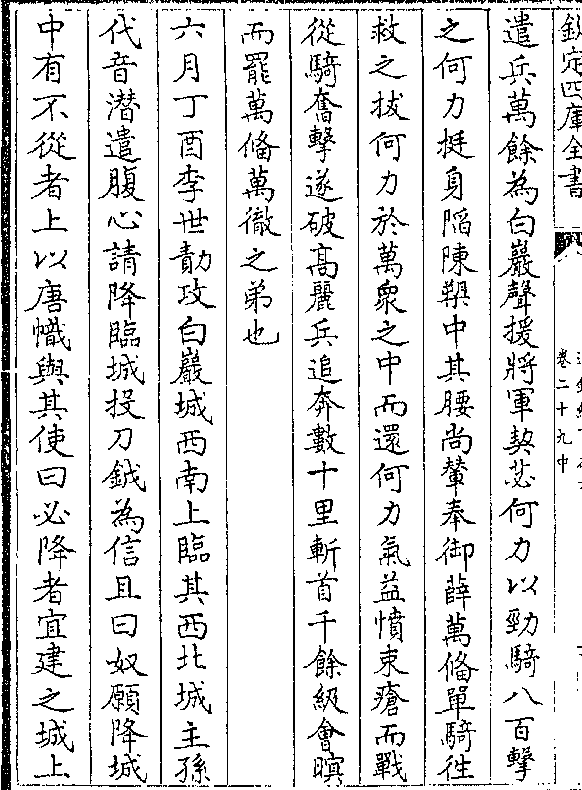 欽定四庫全書
卷二十九中
遣兵萬餘為白巖聲援將軍契苾何力以勁騎八百擊
之何力挺身陷陳槊中其腰尚輦奉御薛萬備單騎往
救之拔何力於萬衆之中而還何力氣益憤束瘡而戰
從騎奮擊遂破高麗兵追奔數十里斬首千餘級會暝
而罷萬備萬徹之弟也
六月丁酉李世勣攻白巖城西南上臨其西北城主孫
代音潛遣腹心請降臨城投刀鉞為信且曰奴願降城
中有不從者上以唐幟與其使曰必降者宜建之城上